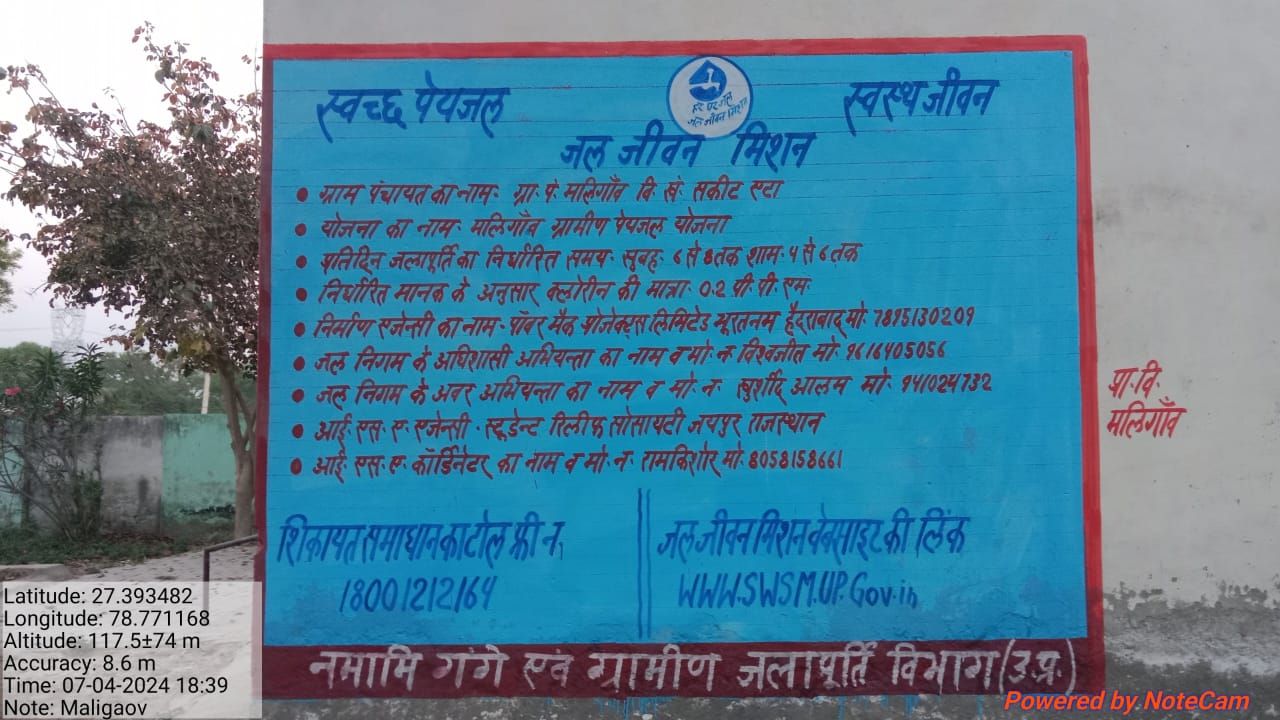 स्वच्छ पेयजल
स्वस्थ जीवन
हर घर जल
जल जीवन मिशन
जल जीवन मिशन
• ग्राम पंचायत का नाम- ग्रा. पं. मलिगाँव वि. खं. सकीट एटा
• योजना का नाम- मलिगाँव ग्रामीण पेयजल योजना
• प्रतिदिन जलापूर्ति का निर्धारित समय- सुबह- 6 से 8 तक शाम- 4 से 6 तक
• निर्धारित मानक के अनुसार क्लोरीन की मात्रा- 0.2 पी. पी. एम.
• निर्माण एजेन्सी का नाम- पॉवर मैक प्रोजेक्ट्स लिमिटेड हैदराबाद मो- 7895130209
• जल निगम के अधिशासी अभियन्ता का नाम व मो. न. विश्वजीत मो- 9616405056
• जल निगम के अवर अभियन्ता का नाम व मो. न. खुर्शीद आलम मो- 941024732
• आई. एस. ए. एजेन्सी - स्टूडेन्ट रिलीफ सोसायटी जयपुर राजस्थान
• आई. एस. ए. कॉर्डिनेटर का नाम व मो. न. रामकिशोर मो- 8058158661
प्रा. वि.
मलिगाँव
शिकायत समाधान का टोल फ्री न.
18001212164
जल जीवन मिशन वेबसाइट की लिंक
WWW.SWSM.UP.Gov.in
नमामि गंगे एवं ग्रामीण जलापूर्ति विभाग (उ.प्र.)
Latitude: 27.393482
Longitude: 78.771168
Altitude: 117.5±74 m
Accuracy: 8.6 m
Time: 07-04-2024 18:39
Note: Maligaov
Powered by NoteCam